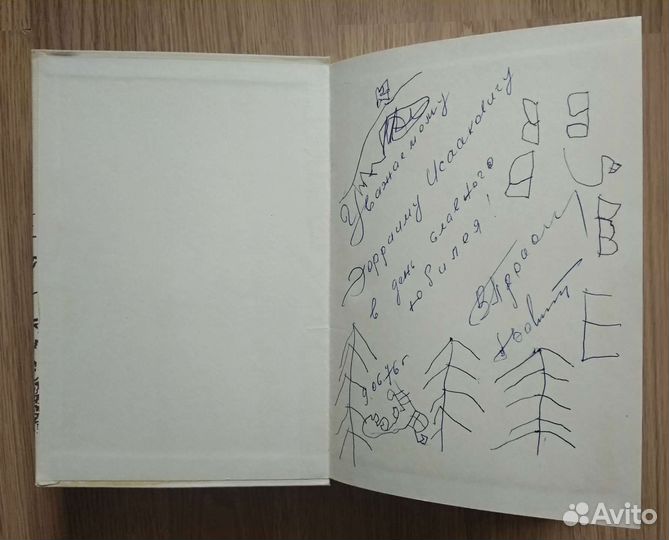 Уважаемому
Эфраиму Исааковичу
в день славного
юбилея!
9.06.76г
Е
Avito